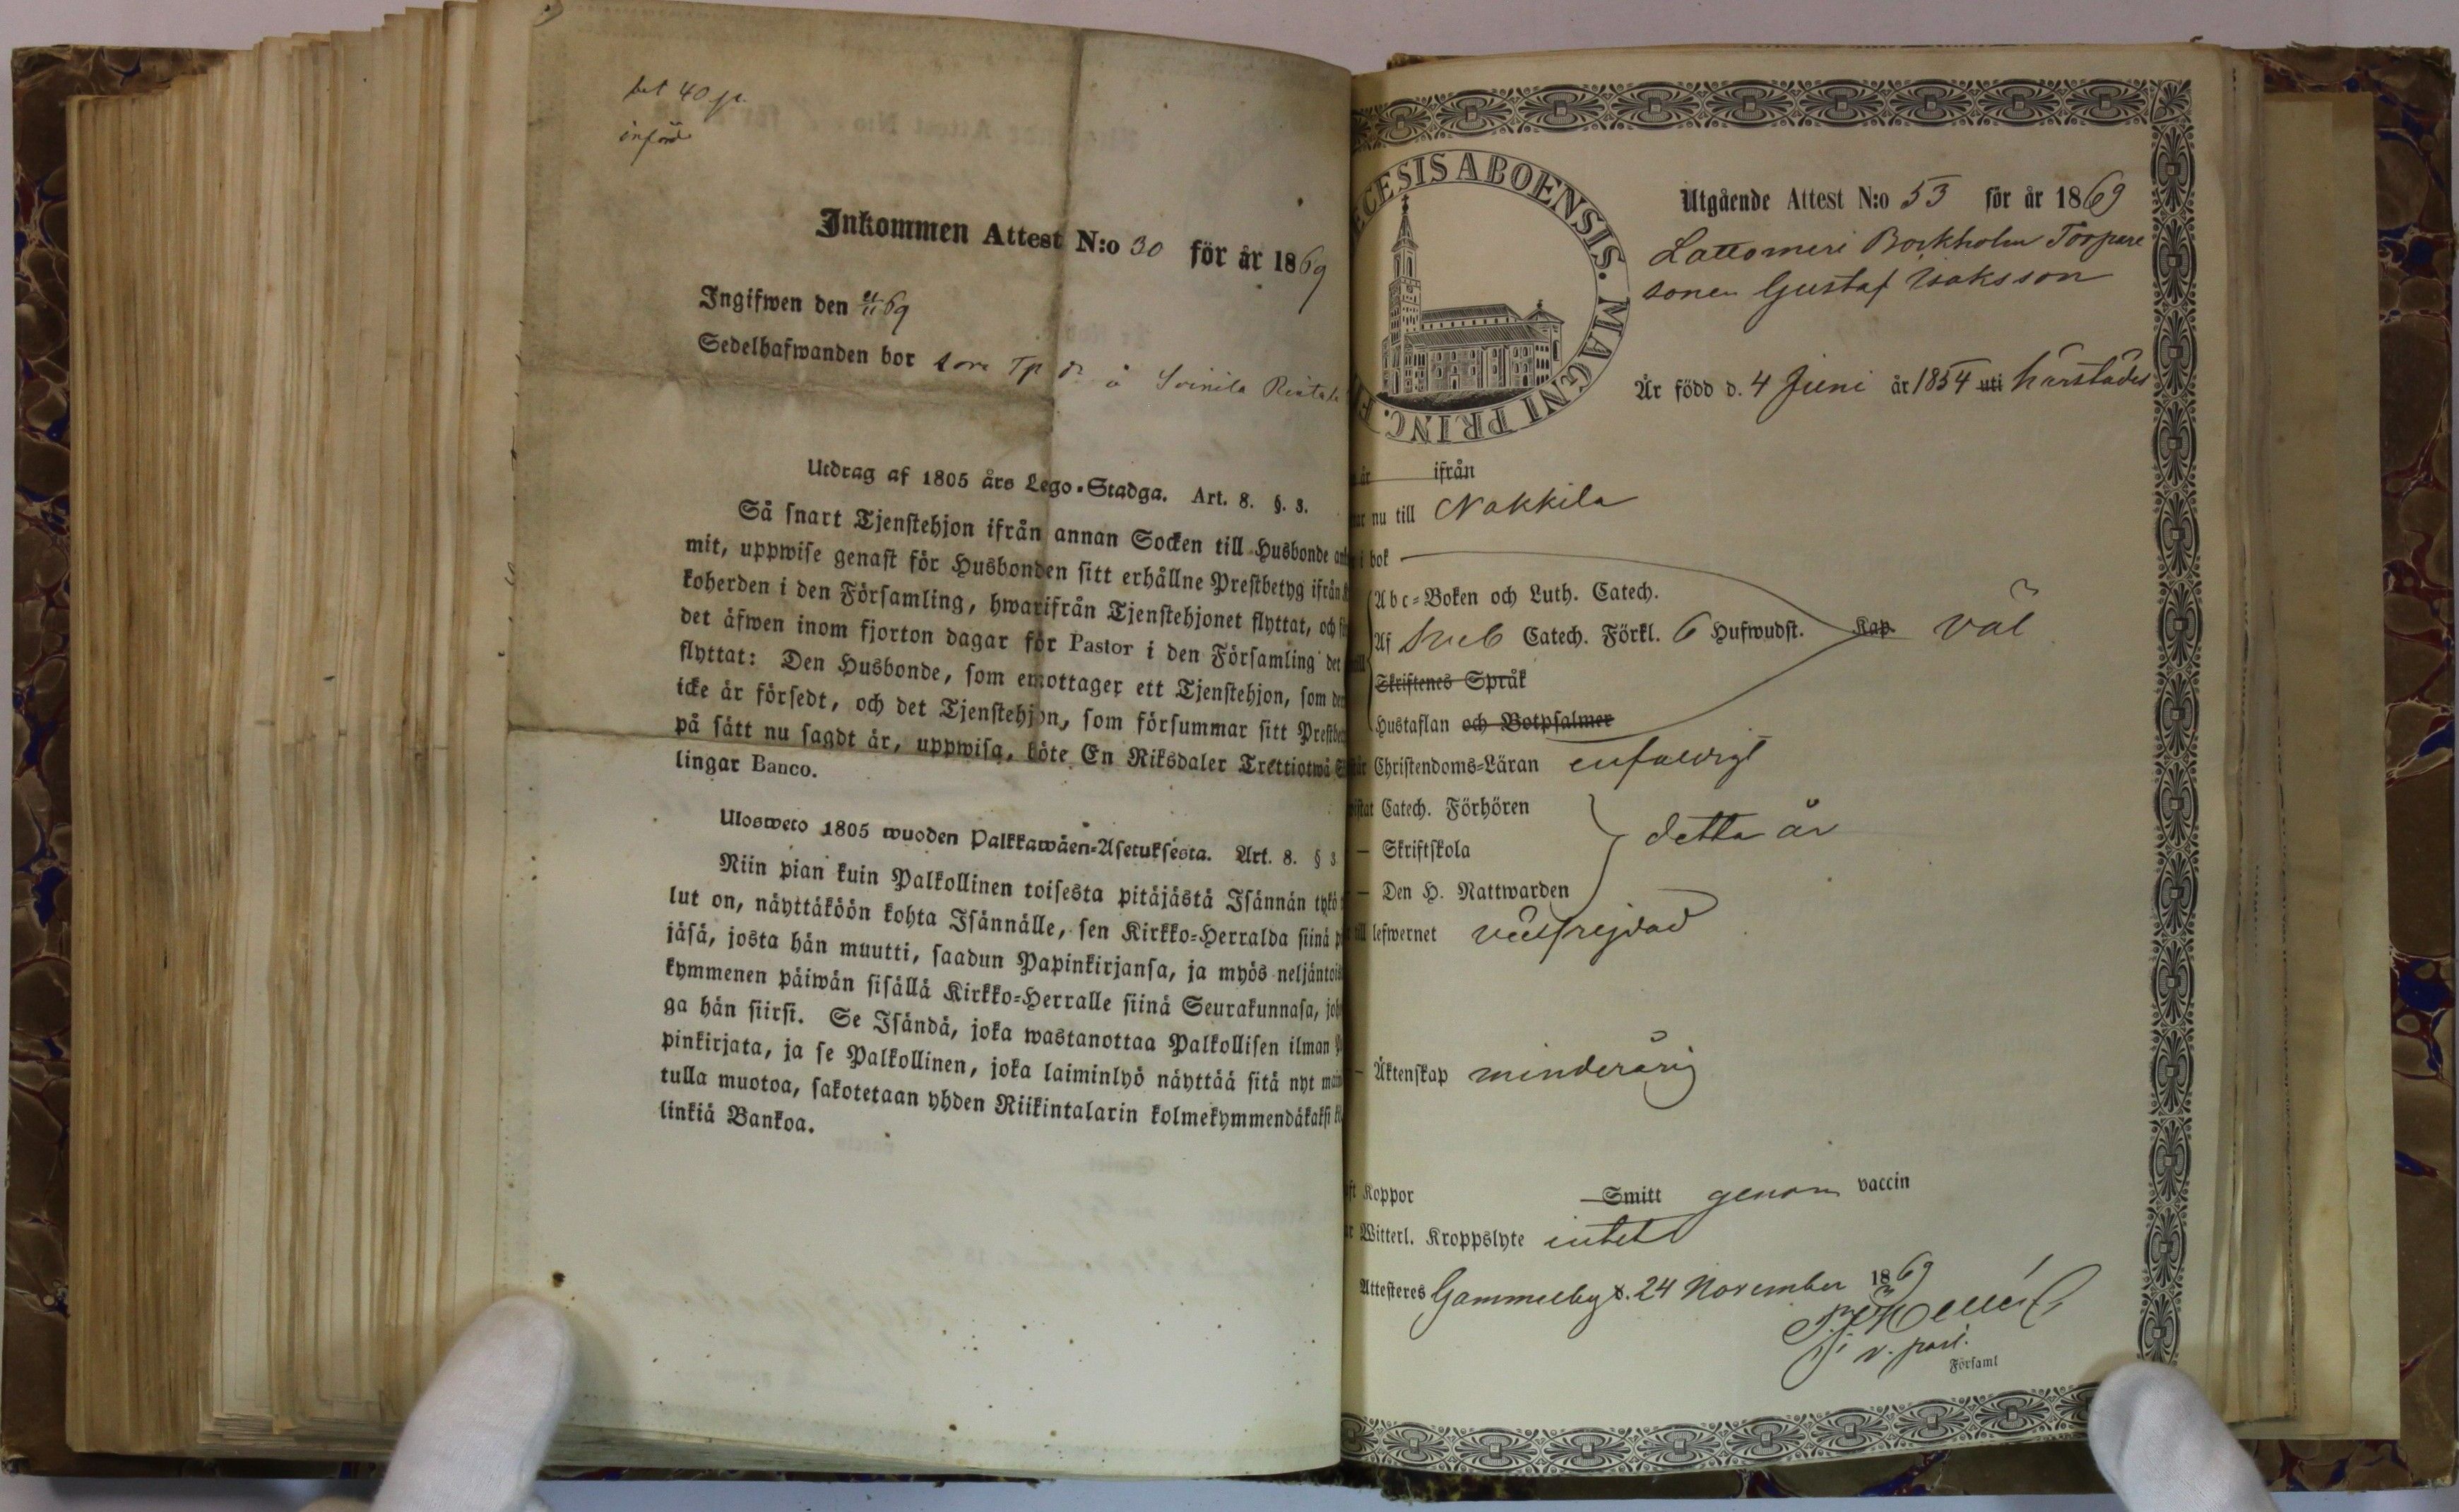 bet 40 p.
införd
Inkommen Attest N:o 30 för år 1869
Ingifwen den 69
Sedelhafwanden bor som Tp dr å
Utdrag af 1805 års Lego-Stadga. Art. 8. §. 3.
Så snart Tjenstehjon ifrån annan Socken till Husbonde
mit, uppwise genast för Husbonden sitt erhållne Prestbetyg ifrån
koherden i den Församling, hwarifrån Tjenstehjonet flyttat, och
det äfwen inom fjorton dagar för Pastor i den Församling det
flyttat: Den Husbonde, som emottager ett Tjenstehjon, som
icke är försedt, och det Tjenstehjon, som försummar sitt Prestbe
på sätt nu sagdt är, uppwisa, böte En Riksdaler Trettiotwå
lingar Banco.
Ulosweto 1805 wuoden Palkkawäen-Asetuksesta. Art. 8. § 3
Niin pian kuin Palkollinen toisesta pitäjästä Isännän tykö
lut on, näyttäköön kohta Isännälle, sen Kirkko-Herralda siinä
jäsä, josta hän muutti, saadun Papinkirjansa, ja myös neljäntois
kymmenen päiwän sisällä Kirkko-Herralle siinä Seurakunnasa, joh
ga hän siirsi. Se Isändä, joka wastanottaa Palkollisen ilman
pinkirjata, ja se Palkollinen, joka laiminlyö näyttää sitä nyt
tulla muotoa, sakotetaan yhden Riikintalarin kolmekymmendäkaksi
linkiä Bankoa.
ECESIS ABOENSIS. MAGNI PRINC. F
Utgående Attest N:o 53 för år 1869
Lattomeri Borkholm Torpare
sonen Gustaf Isaksson
Är född d. 4 Juni år 1854 uti härstädes
år ifrån
nu till Nakkila
i bok
Abc-Boken och Luth. Catech.
Af Sveb Catech. Förkl. 6 Hufwudst. Kap. väl
Skriftenes Språk
Hustaflan och Botpsalmer
Christendoms-Läran enfaldigt
Catech. Förhören
— Skriftskola detta år
— Den H. Nattwarden
till lefwernet välfrejdad
— Äktenskap minderårig
Koppor Smitt genom vaccin
Witterl. Kroppslyte intet
Attesteres Gammelby d. 24 November 1869
v. past.
Församl